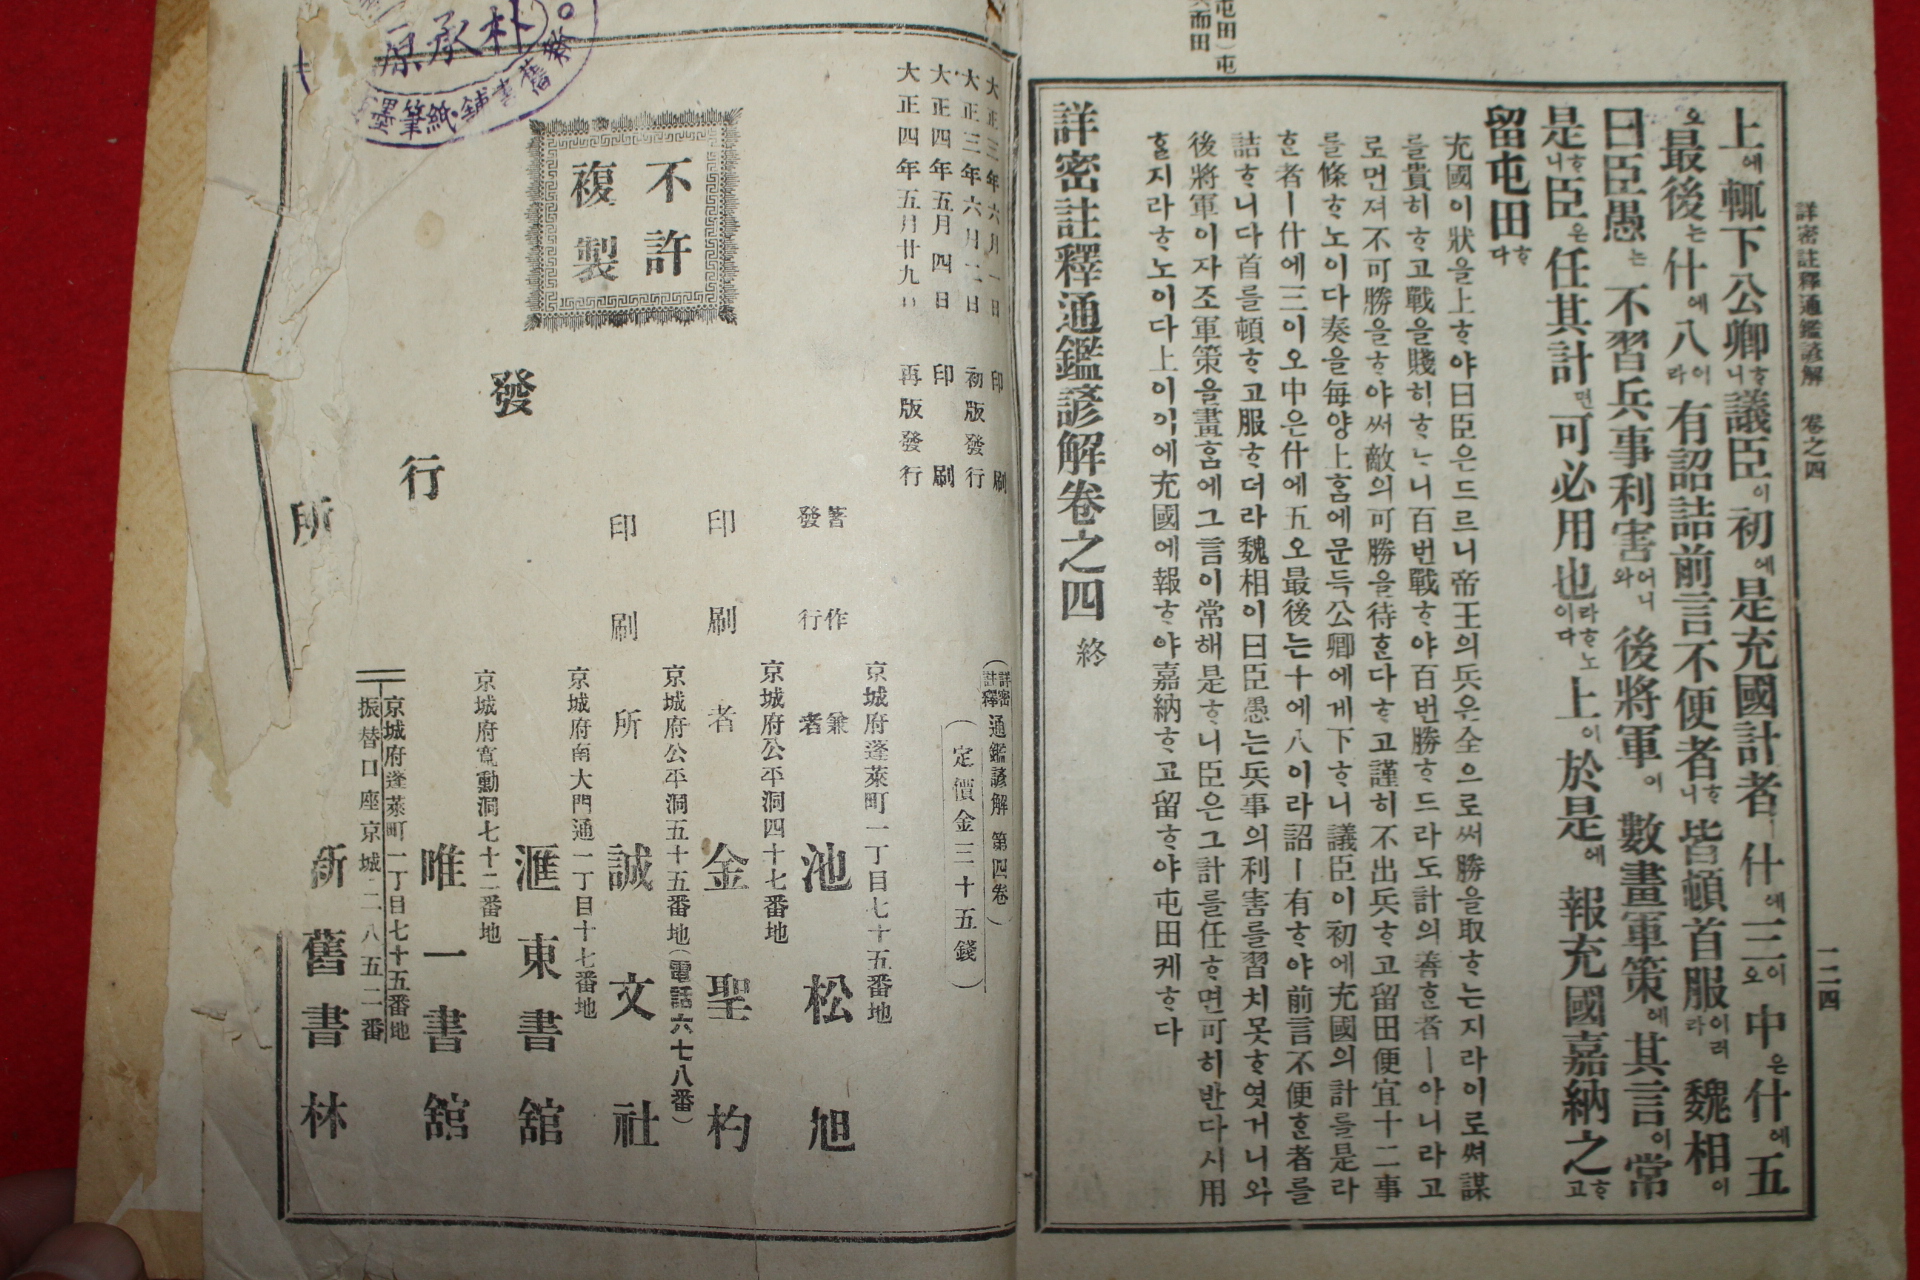 屯田)屯
而田
詳密註釋通鑑諺解 卷之四
一二四
上에輒下公卿ᄒᆞ니議臣이初에是充國計者ㅣ什에三이오中은什에五
오最後ᄂᆞᆫ什에八이라有詔詰前言不便者ᄒᆞ니皆頓首服이러라魏相이
曰臣愚ᄂᆞᆫ不習兵事利害어니와後將軍이數畫軍策에其言이常
是ᄒᆞ니臣은任其計면可必用也라ᄒᆞ노이다上이於是에報充國嘉納之ᄒᆞ고
留屯田ᄒᆞ다
充國이狀을上ᄒᆞ야曰臣은드르니帝王의兵은全으로써勝을取ᄒᆞᄂᆞᆫ지라이로써謀
를貴히ᄒᆞ고戰을賤히ᄒᆞᄂᆞ니百번戰ᄒᆞ야百번勝ᄒᆞ드라도計의善ᄒᆞᆫ者ㅣ아니라고
로먼져不可勝을ᄒᆞ야써敵의可勝을待ᄒᆞᆫ다ᄒᆞ고謹히不出兵ᄒᆞ고留田便宜十二事
를條ᄒᆞ노이다奏을每양上ᄒᆞᆷ에문득公卿에게下ᄒᆞ니議臣이初에充國의計를是라
ᄒᆞᆫ者ㅣ什에三이오中은什에五오最後는十에八이라詔ㅣ有ᄒᆞ야前言不便ᄒᆞᆫ者를
詰ᄒᆞ니다首를頓ᄒᆞ고服ᄒᆞ더라魏相이曰臣愚는兵事의利害를習치못ᄒᆞ엿거니와
後將軍이자조軍策을畫ᄒᆞᆷ에그言이常해是ᄒᆞ니臣은그計를任ᄒᆞ면可히반다시用
ᄒᆞᆯ지라ᄒᆞ노이다上이이에充國에報ᄒᆞ야嘉納ᄒᆞ고留ᄒᆞ야屯田케ᄒᆞ다
詳密註釋通鑑諺解卷之四 終
大正三年六月一日 印刷
大正三年六月二日 初版發行
大正四年五月四日 印刷
大正四年五月廿九日 再版發行
不許
複製
(詳密註釋通鑑諺解 第四卷)
(定價金三十五錢)
京城府蓬萊町一丁目七十五番地
著作兼
發行者 池松旭
京城府公平洞四十七番地
印刷者 金聖杓
京城府公平洞五十五番地(電話六七八番)
印刷所 誠文社
京城府南大門通一丁目十七番地
滙東書舘
京城府寬勳洞七十二番地
唯一書舘
京城府蓬萊町一丁目七十五番地
振替口座京城二八五二番
發行所 新舊書林
朴承原
舊書鋪·紙筆墨